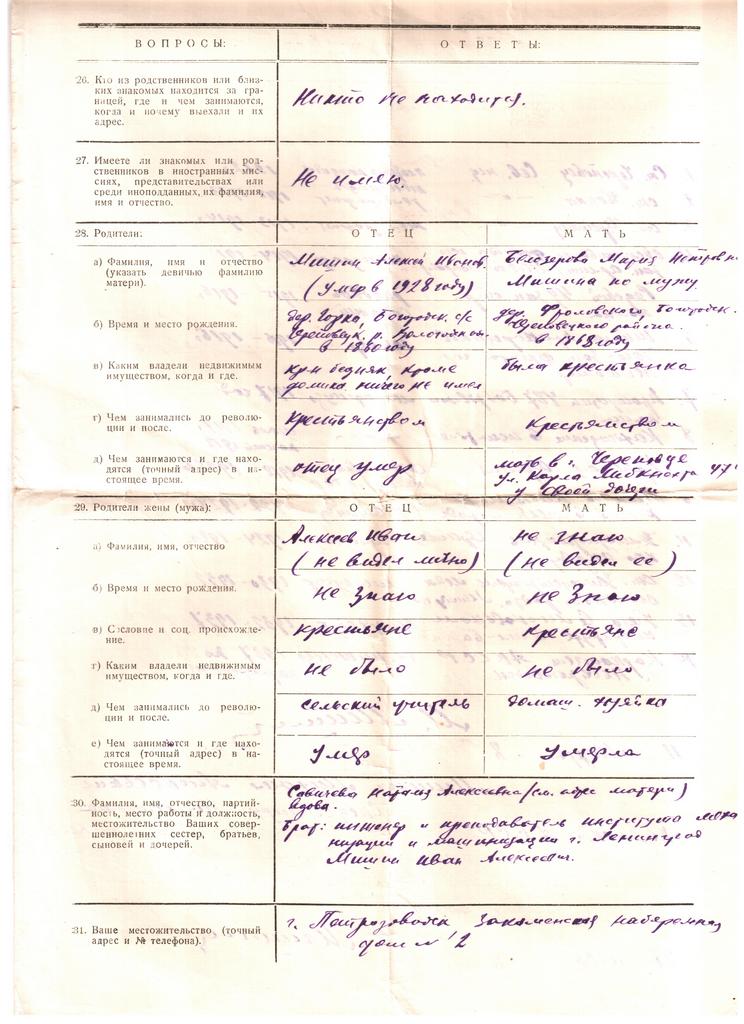 ВОПРОСЫ: ОТВЕТЫ:
26. Кто из родственников или близ-
ких знакомых находится за гра-
ницей, где и чем занимаются,
когда и почему выехали и их
адрес.
Никто не находится.
27. Имеете ли знакомых или род-
ственников в иностранных мис-
сиях, представительствах или
среди иноподданных, их фамилия,
имя и отчество.
Не имею.
28. Родители: ОТЕЦ МАТЬ
а) Фамилия, имя и отчество
(указать девичью фамилию
матери).
Мишин Алексей Иванов.
(умер в 1928 году)
Белозерова Мария Петровн.
Мишина по мужу
б) Время и место рождения.
дер. Горка, Богородск. с/с
Череповецк. р. Вологодской
в 1860 году
дер. Фроловского, Богородск.
Череповецкого района
в 1868 году
в) Каким владели недвижимым
имуществом, когда и где.
крн бедняк, кроме
домика ничего не имел
была крестьянка
г) Чем занимались до револю-
ции и после.
Крестьянством
Крестьянством
д) Чем занимаются и где нахо-
дятся (точный адрес) в на-
стоящее время.
отец умер
мать в г. Череповце
ул. Карла Либкнехта 47
у своей дочери
29. Родители жены (мужа): ОТЕЦ МАТЬ
а) Фамилия, имя, отчество
Алексеев Иван
(не видел лично)
не знаю
(не видел ее)
б) Время и место рождения.
не знаю
не знаю
в) Сословие и соц. происхожде-
ние.
крестьяне
крестьяне
г) Каким владели недвижимым
имуществом, когда и где.
не было
не было
д) Чем занимались до револю-
ции и после.
сельский учитель
домаш. хозяйка
е) Чем занимаются и где нахо-
дятся (точный адрес) в на-
стоящее время.
умер
умерла
30. Фамилия, имя, отчество, партий-
ность, место работы и должность,
местожительство Ваших совер-
шеннолетних сестер, братьев,
сыновей и дочерей.
Савичева Наталья Алексеевна (см. адрес матери)
вдова.
Брат: инженер и преподаватель института меха
низации и машинизации г. Ленинград
Мишин Иван Алексеевич.
31. Ваше местожительство, (точный
адрес и № телефона).
г. Петрозаводск, набережная
дом № 2